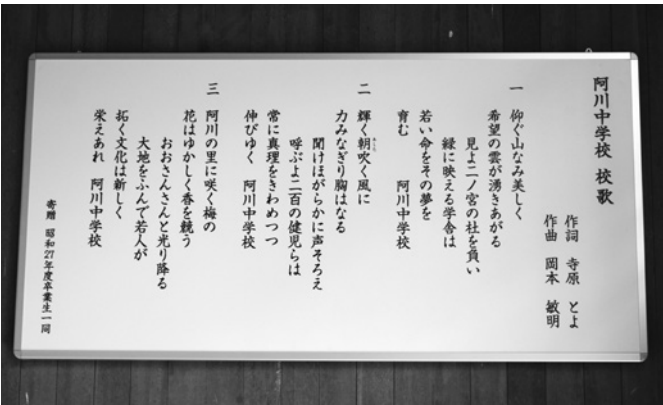 阿川中学校 校歌
作詞 寺原 とよ
作曲 岡本 敏明
一 仰ぐ山なみ美しく
希望の雲が湧きあがる
見よ二ノ宮の杜を負い
緑に映える学舎は
若い命をその夢を
育む 阿川中学校
二 輝く朝吹く風に
力みなぎり胸はなる
聞けほがらかに声そろえ
呼ぶよ二百の健児らは
常に真理をきわめつつ
伸びゆく 阿川中学校
三 阿川の里に咲く梅の
花はゆかしく香を競う
おおさんさんと光り降る
大地をふんで若人が
拓く文化は新しく
栄えあれ 阿川中学校
寄贈 昭和27年度卒業生一同